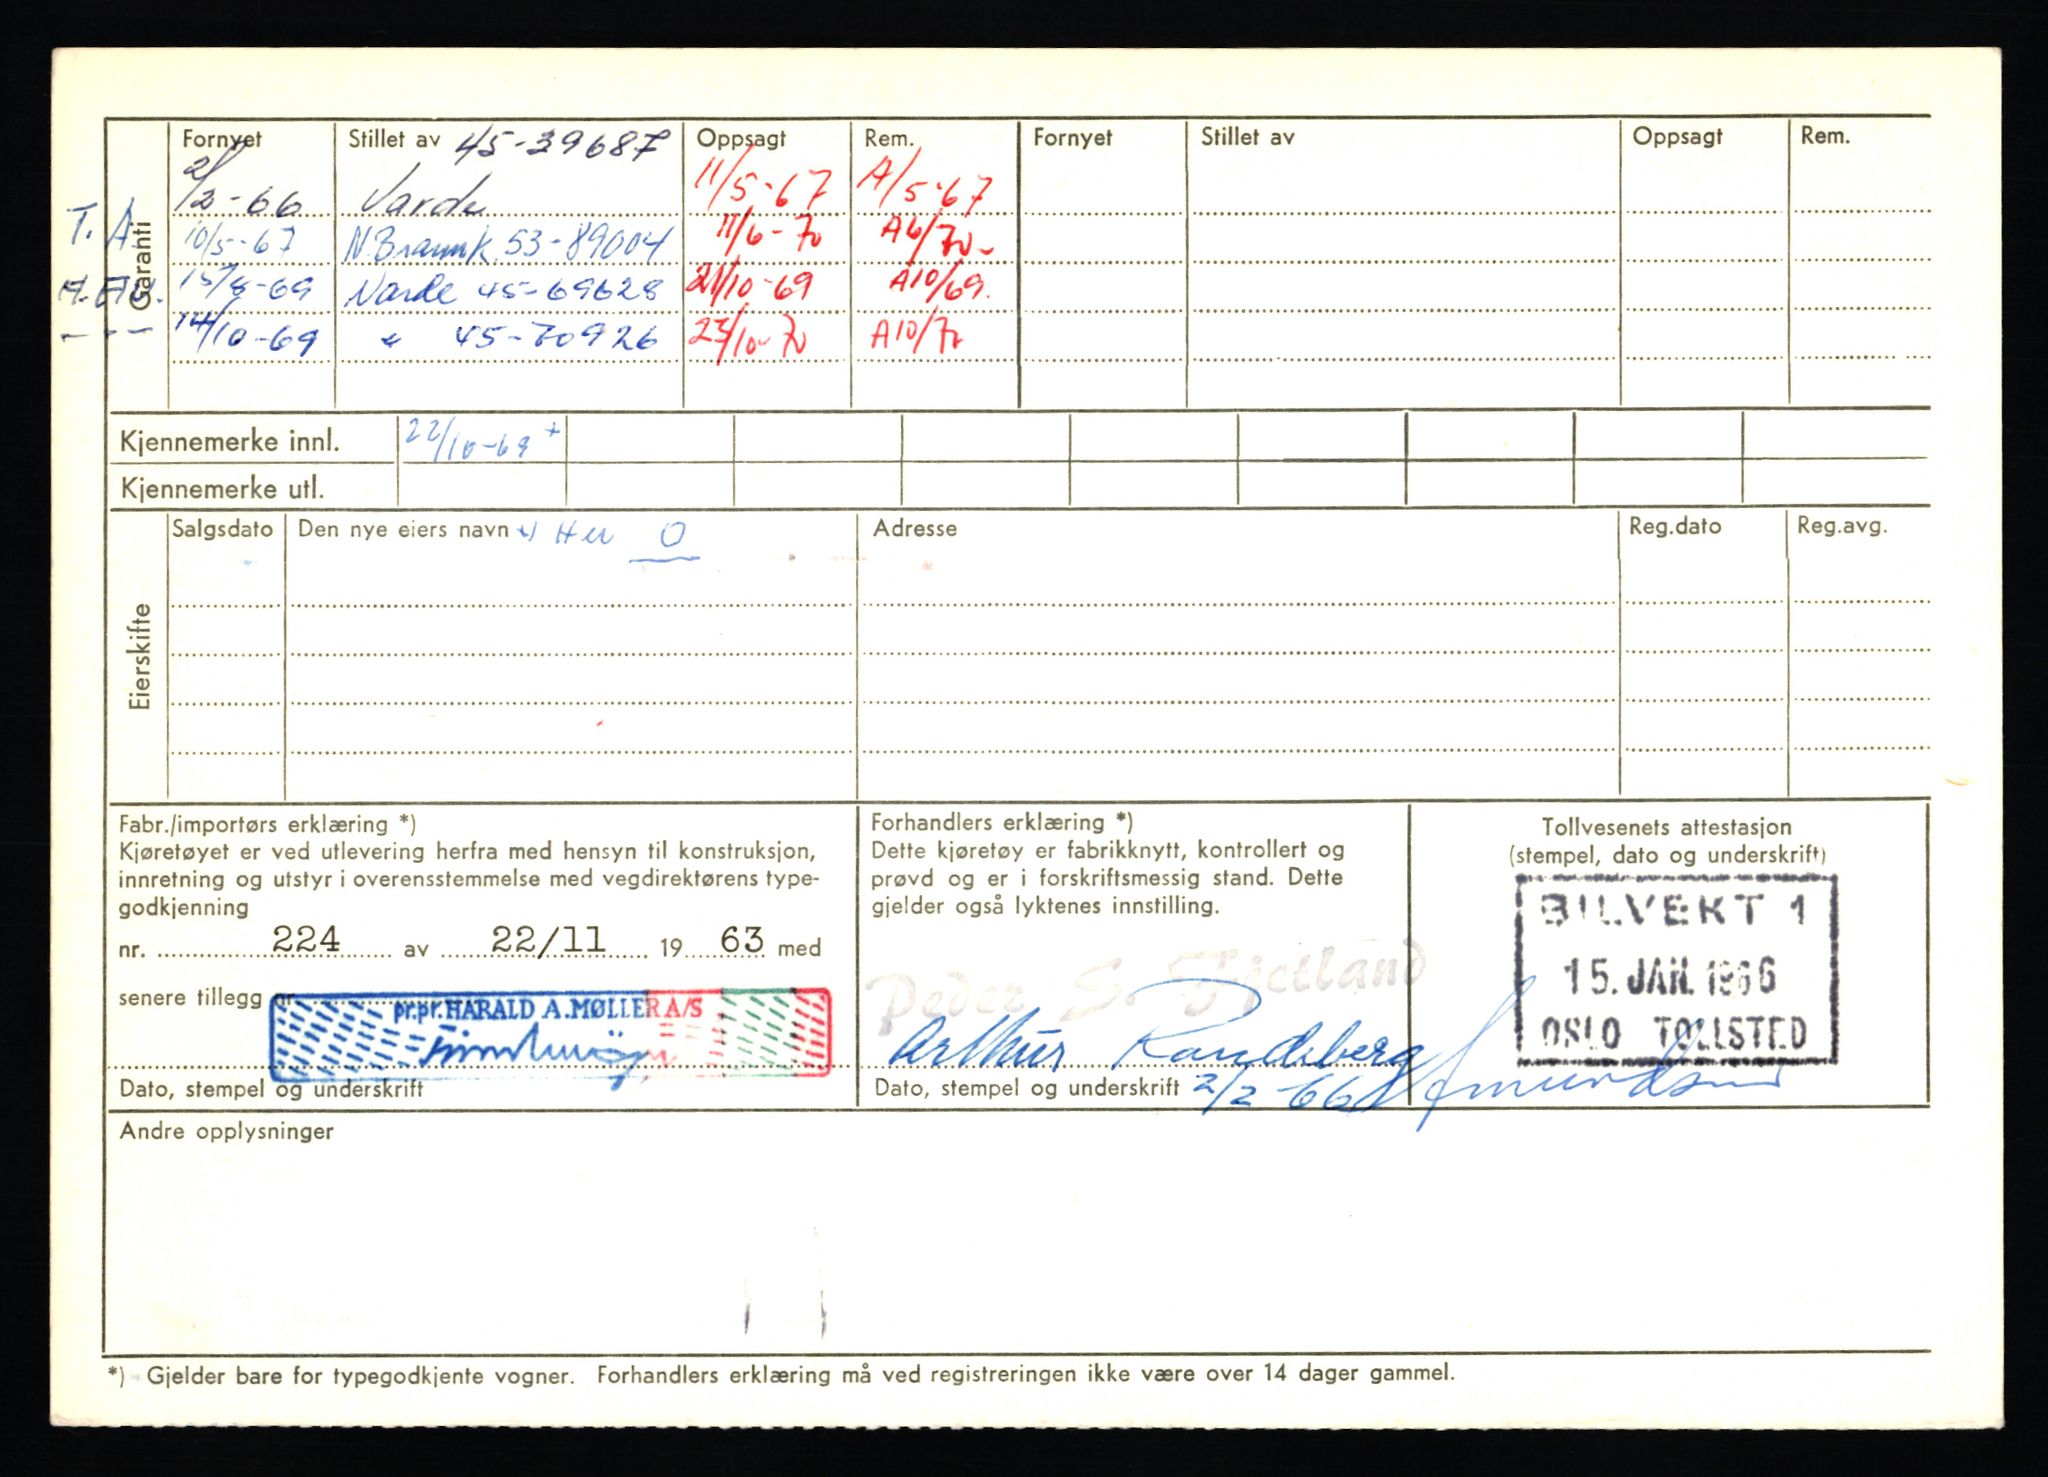 Garanti
Fornyet Stillet av 45-39687 Oppsagt Rem. Fornyet Stillet av Oppsagt Rem.
2/2-66 Varde 11/5-67 A/5-67
T. A. 10/5-67 53-89004 11/6-70 A6/70
15/8-69 Varde 45-69628 21/10-69 A10/69.
--- 14/10-69 " 45-70926 23/10-70 A10/70
Kjennemerke innl. 22/10-69 +
Kjennemerke utl.
Eierskifte
Salgsdato Den nye eiers navn +) Her O Adresse Reg.dato Reg.avg.
Fabr./importørs erklæring *)
Kjøretøyet er ved utlevering herfra med hensyn til konstruksjon,
innretning og utstyr i overensstemmelse med vegdirektørens type-
godkjenning
nr. 224 av 22/11 19 63 med
senere tillegg nr.
pr.pr. HARALD A. MØLLER A/S
Dato, stempel og underskrift
Forhandlers erklæring *)
Dette kjøretøy er fabrikknytt, kontrollert og
prøvd og er i forskriftsmessig stand. Dette
gjelder også lyktenes innstilling.
Peder S. Fjetland
Arthur Randeberg
Dato, stempel og underskrift 2/2-66
Tollvesenets attestasjon
(stempel, dato og underskrift)
BILVEKT 1
15. JAN. 1966
OSLO TOLLSTED
Amundsen
Andre opplysninger
*) Gjelder bare for typegodkjente vogner. Forhandlers erklæring må ved registreringen ikke være over 14 dager gammel.